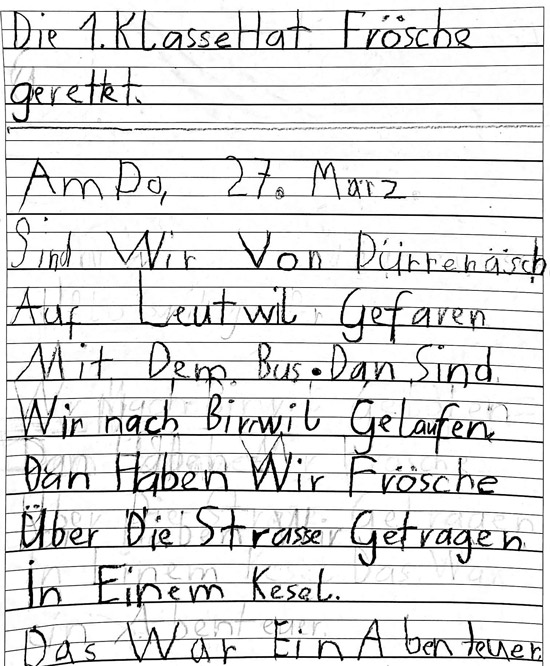 Die 1. Klasse Hat Frösche
gerettet.
Am Do, 27. März
Sind Wir Von Dürrenäsch
Auf Leutwil Gefaren
Mit Dem Bus. Dan Sind
Wir nach Birrwil Gelaufen.
Dan Haben Wir Frösche
Über Die Strasse Getragen
in Einem Kesel.
Das War Ein Abenteuer.